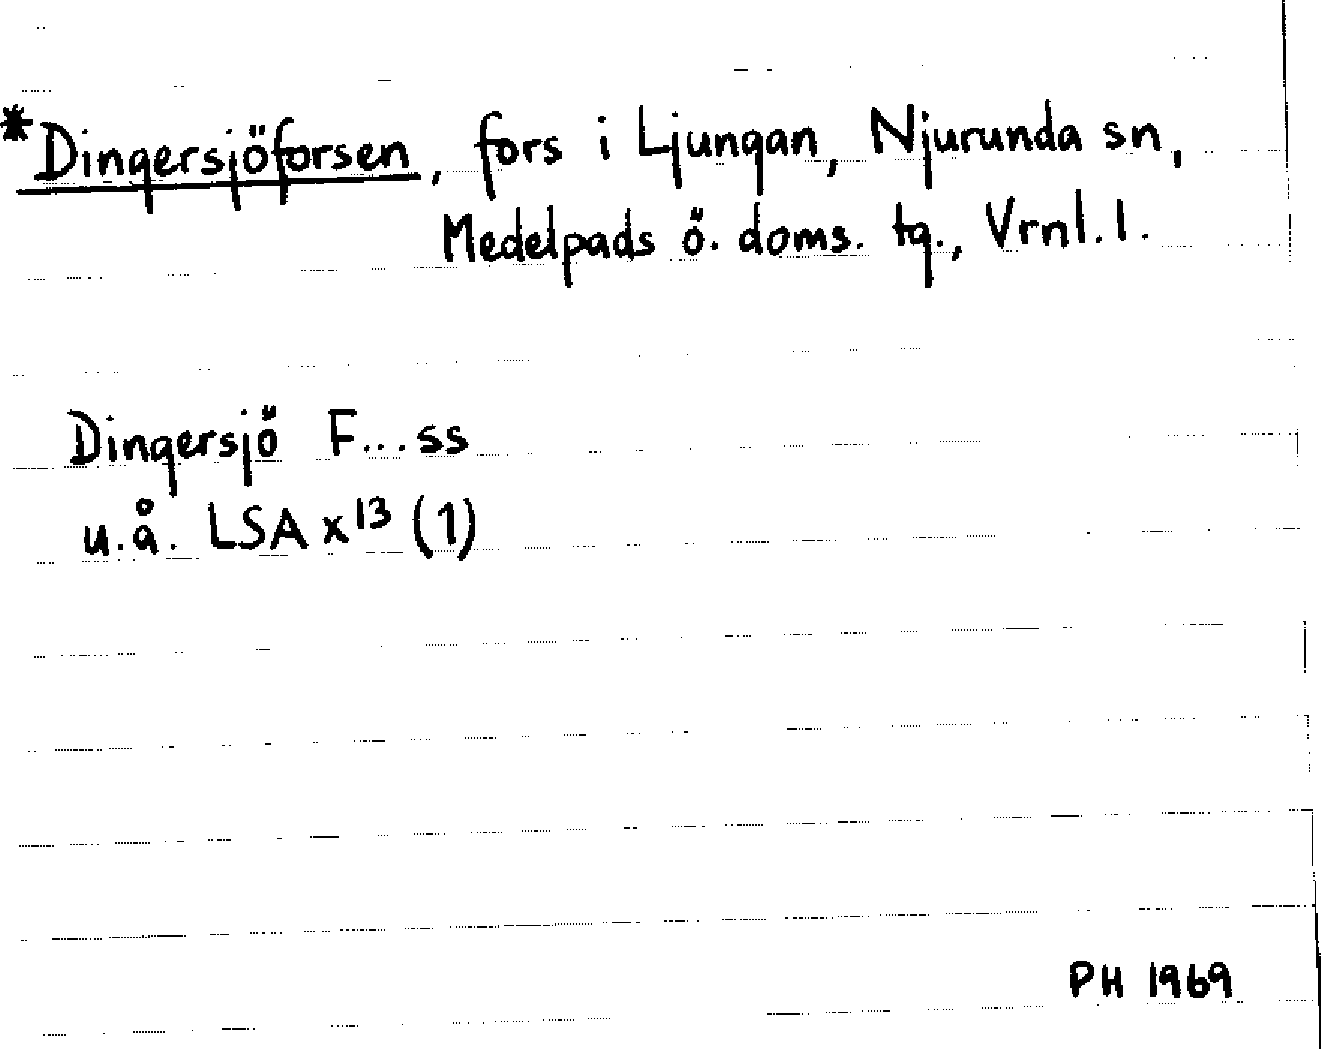 *Dingersjöforsen, fors i Ljungan, Njurunda sn,
Medelpads ö. doms. tg., Vrnl. l.
Dingersjö F...ss
u.å. LSA x¹³ (1)
PH 1969